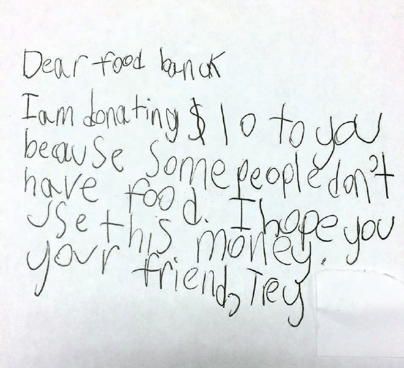 Dear food banck
I am donating $10 to you
beause some people don't
have food. I hope you
use this money.
your friend, Trey